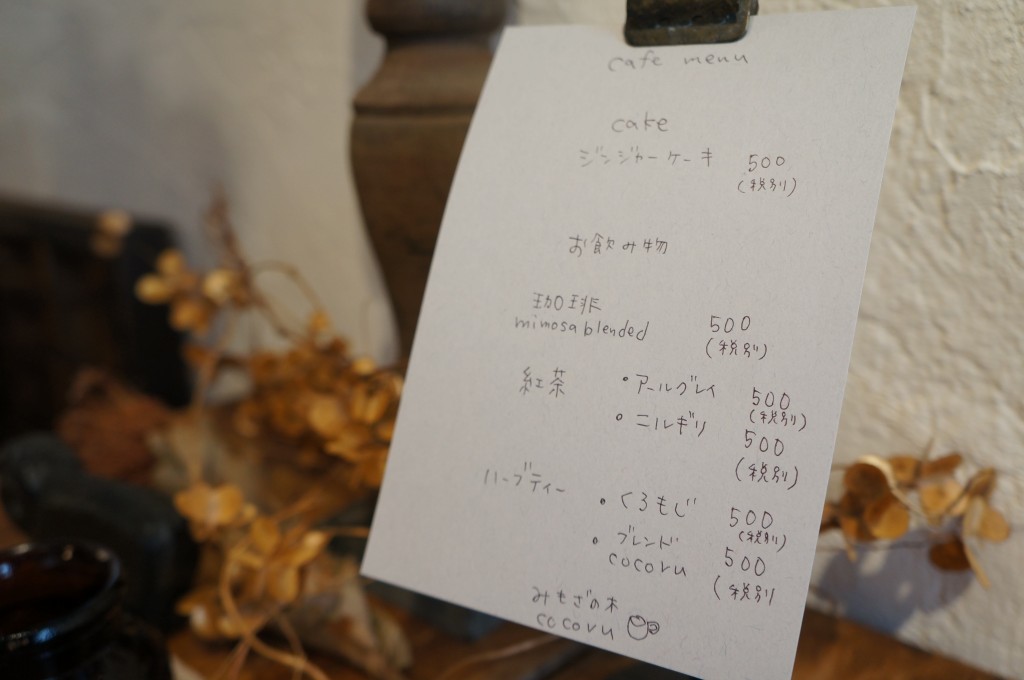 cafe menu
cake
ジンジャーケーキ 500
(税別)
お飲み物
珈琲
mimosa blended 500
(税別)
紅茶 ・アールグレイ 500
(税別)
・ニルギリ 500
(税別)
ハーブティー ・くろもじ 500
(税別)
・ブレンド
cocoru 500
(税別
みもざの木
cocoru